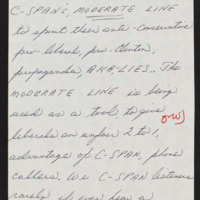 C-SPAN's, MODERATE LINE
to spout their anti-conservative
pro-liberal, pro-Clinton,
propaganda, AKA, LIES.. The
MODERATE LINE is being
used as a tool to give
liberals an unfair 2 to 1,
advantage of C-SPAN, phone
callers. We C-SPAN listeners
rarely if ever hear a